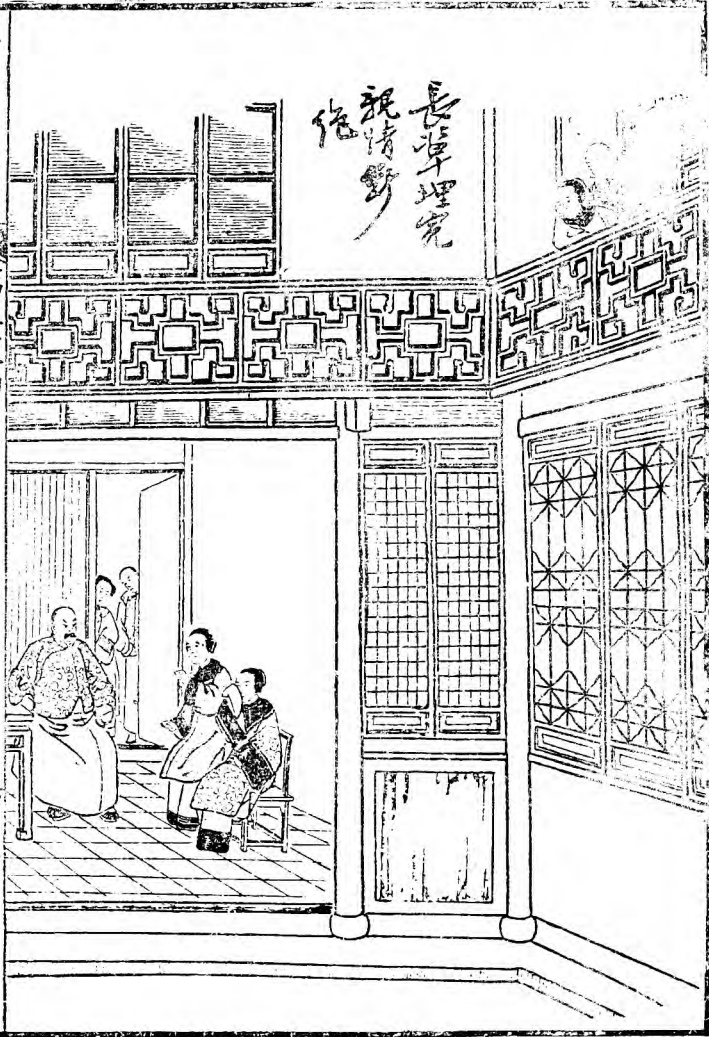 長輩埋寃
親情斷
絕